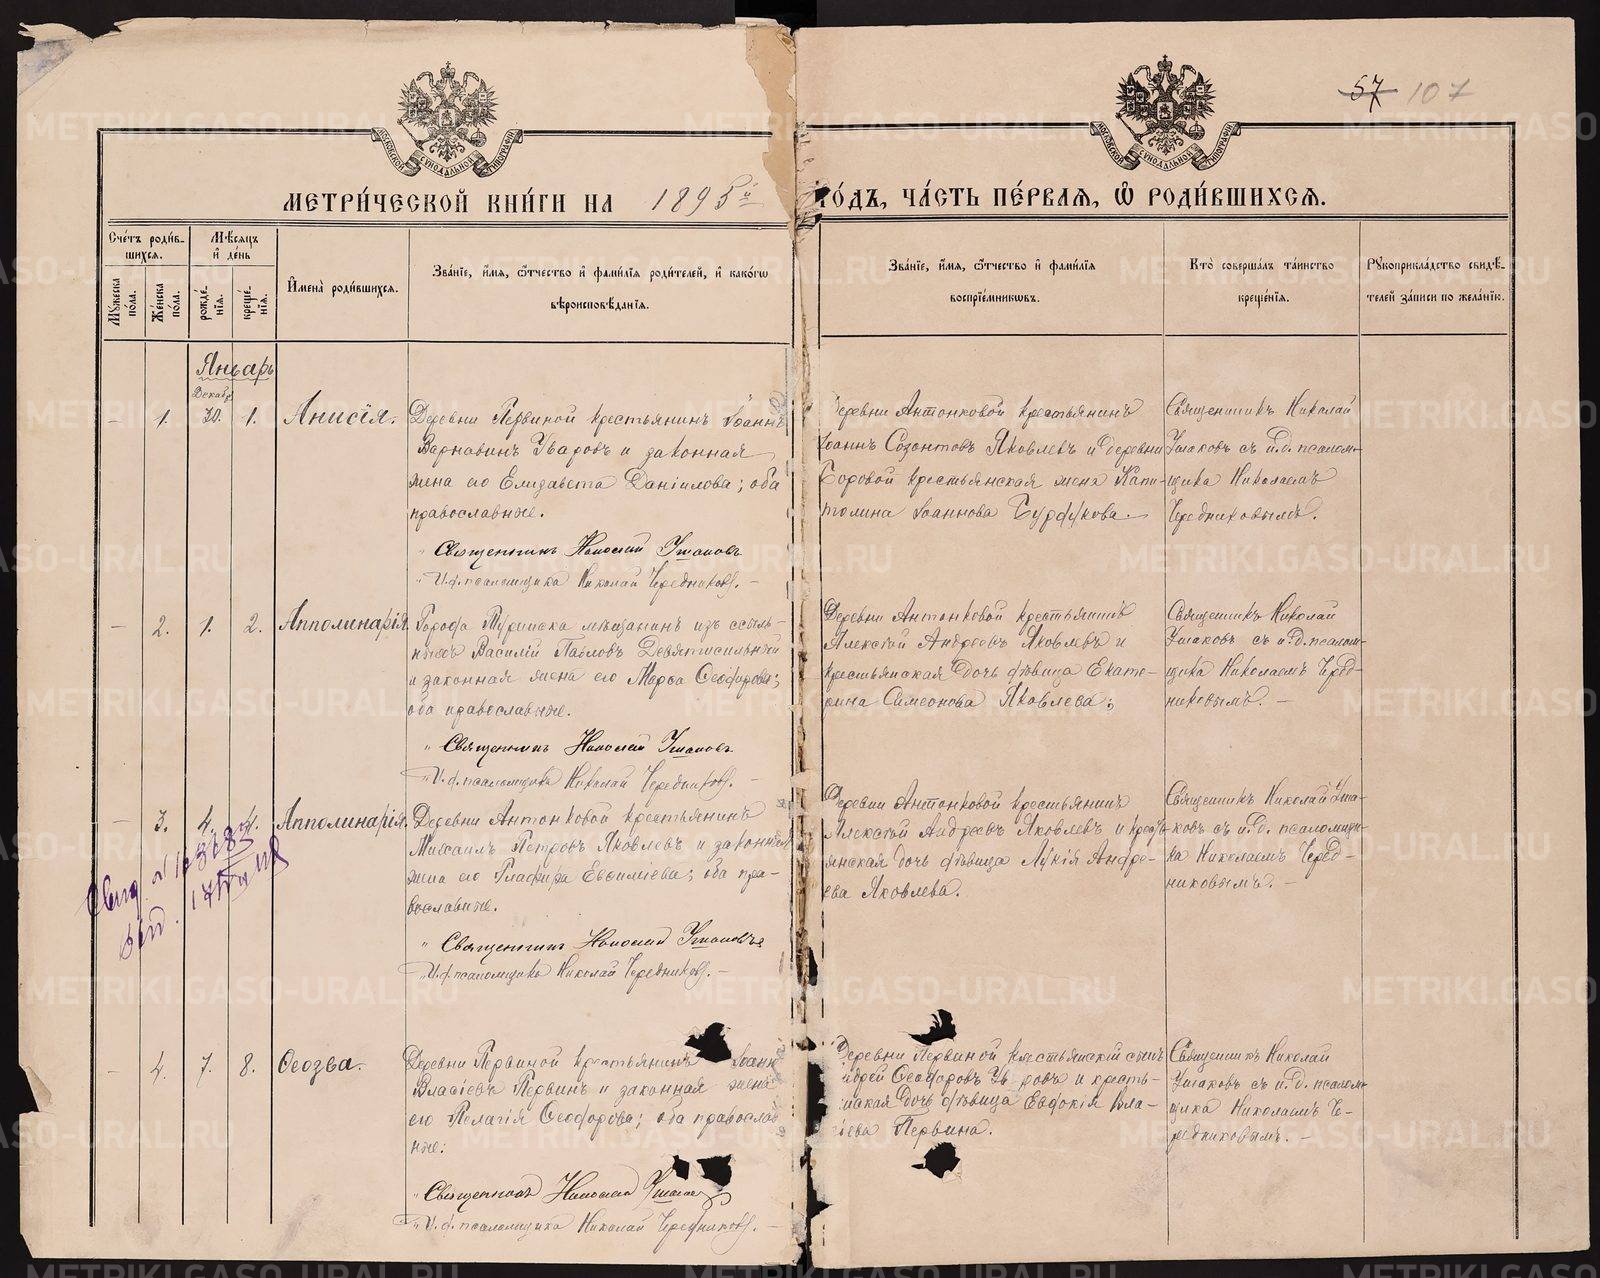 57 107
МОСКОВСКОЙ СѴНОДАЛЬНОЙ ТИПОГРАФІИ
МОСКОВСКОЙ СѴНОДАЛЬНОЙ ТИПОГРАФІИ
МЕТРИ́ЧЕСКОЙ КНИ́ГИ НА 1895й ГО́ДЪ, ЧА́СТЬ ПЕ́РВАѦ, Ѽ РОДИ́ВШИХСѦ.
Сче́тъ роди́в-
шихся.
Мѣ́сяцъ
и҆ де́нь
Му́жеска
по́ла.
Же́нска
по́ла.
рожде́-
нїѧ.
креще́-
нїѧ.
И҆мена̀ роди́вшихсѧ.
Зва́нїе, и҆́мѧ, ѻ҆́тчество и҆ фами́лїѧ роди́телей, и҆ како́гѡ
вѣроисповѣ́данїѧ.
Зва́нїе, и҆́мѧ, ѻ҆́тчество и҆ фами́лїѧ
воспрїе́мникѡвъ.
Кто̀ соверша́лъ та́инство
креще́нїѧ.
Рꙋкоприкла́дство свидѣ́-
телей за́писи по жела́нїю.
Январь
Декабр.
– 1. 30. 1. Анисія.
Деревни Первиной крестьянинъ Іоаннъ
Варнавинъ Уваровъ и законная
жена его Елизавета Даніилова; оба
православные.
Священникъ Николай Ушаковъ
И.д. псаломщика Николай Чередниковъ. –
Деревни Антонковой крестьянинъ
Іоаннъ Созонтовъ Яковлевъ и деревни
Боровой крестьянская жена Капи-
толина Іоаннова
Священникъ Николай
Ушаковъ съ и.д. псалом-
щика Николаемъ
Чередниковымъ.
– 2. 1. 2. Апполинарія.
Города Туринска мѣщанинъ изъ ссыль-
ныхъ Василій Павловъ Девятисильный
и законная жена его Марѳа Ѳеодорова;
оба православные.
Священникъ Николай Ушаковъ
И.д. псаломщика Николай Чередниковъ. –
Деревни Антонковой крестьянинъ
Алексѣй Андреевъ Яковлевъ и
крестьянская дочь дѣвица Екате-
рина Симеонова Яковлева;
Священникъ Николай
Ушаковъ съ и.д. псалом-
щика Николаемъ Черед-
никовымъ. –
– 3. 4. 4. Апполинарія.
Деревни Антонковой крестьянинъ
Михаилъ Петровъ Яковлевъ и законная
жена его Глафира Евѳиміева; оба пра-
вославные.
Священникъ Николай Ушаковъ
И.д. псаломщика Николай Чередниковъ. –
Деревни Антонковой крестьянинъ
Алексѣй Андреевъ Яковлевъ и кресть-
янская дочь дѣвица Лукія Андре-
ева Яковлева.
Священникъ Николай Уша-
ковъ съ и.д. псаломщи-
ка Николаемъ Черед-
никовымъ. –
– 4. 7. 8. Ѳеозва.
Деревни Первиной крестьянинъ Іоаннъ
Власіевъ Первинъ и законная жена
его Пелагія Ѳеодорова; оба православ
ные.
Священникъ Николай Ушаковъ
И.д. псаломщика Николай Чередниковъ. –
Деревни Первиной крестьянскій сынъ
Ѳеодоровъ и кресть-
янская дочь дѣвица Евдокія Вла-
сіева Первина.
Священникъ Николай
Ушаковъ съ и.д. псалом-
щика Николаемъ Че-
редниковымъ. –
METRIKI.GASO-URAL.RU